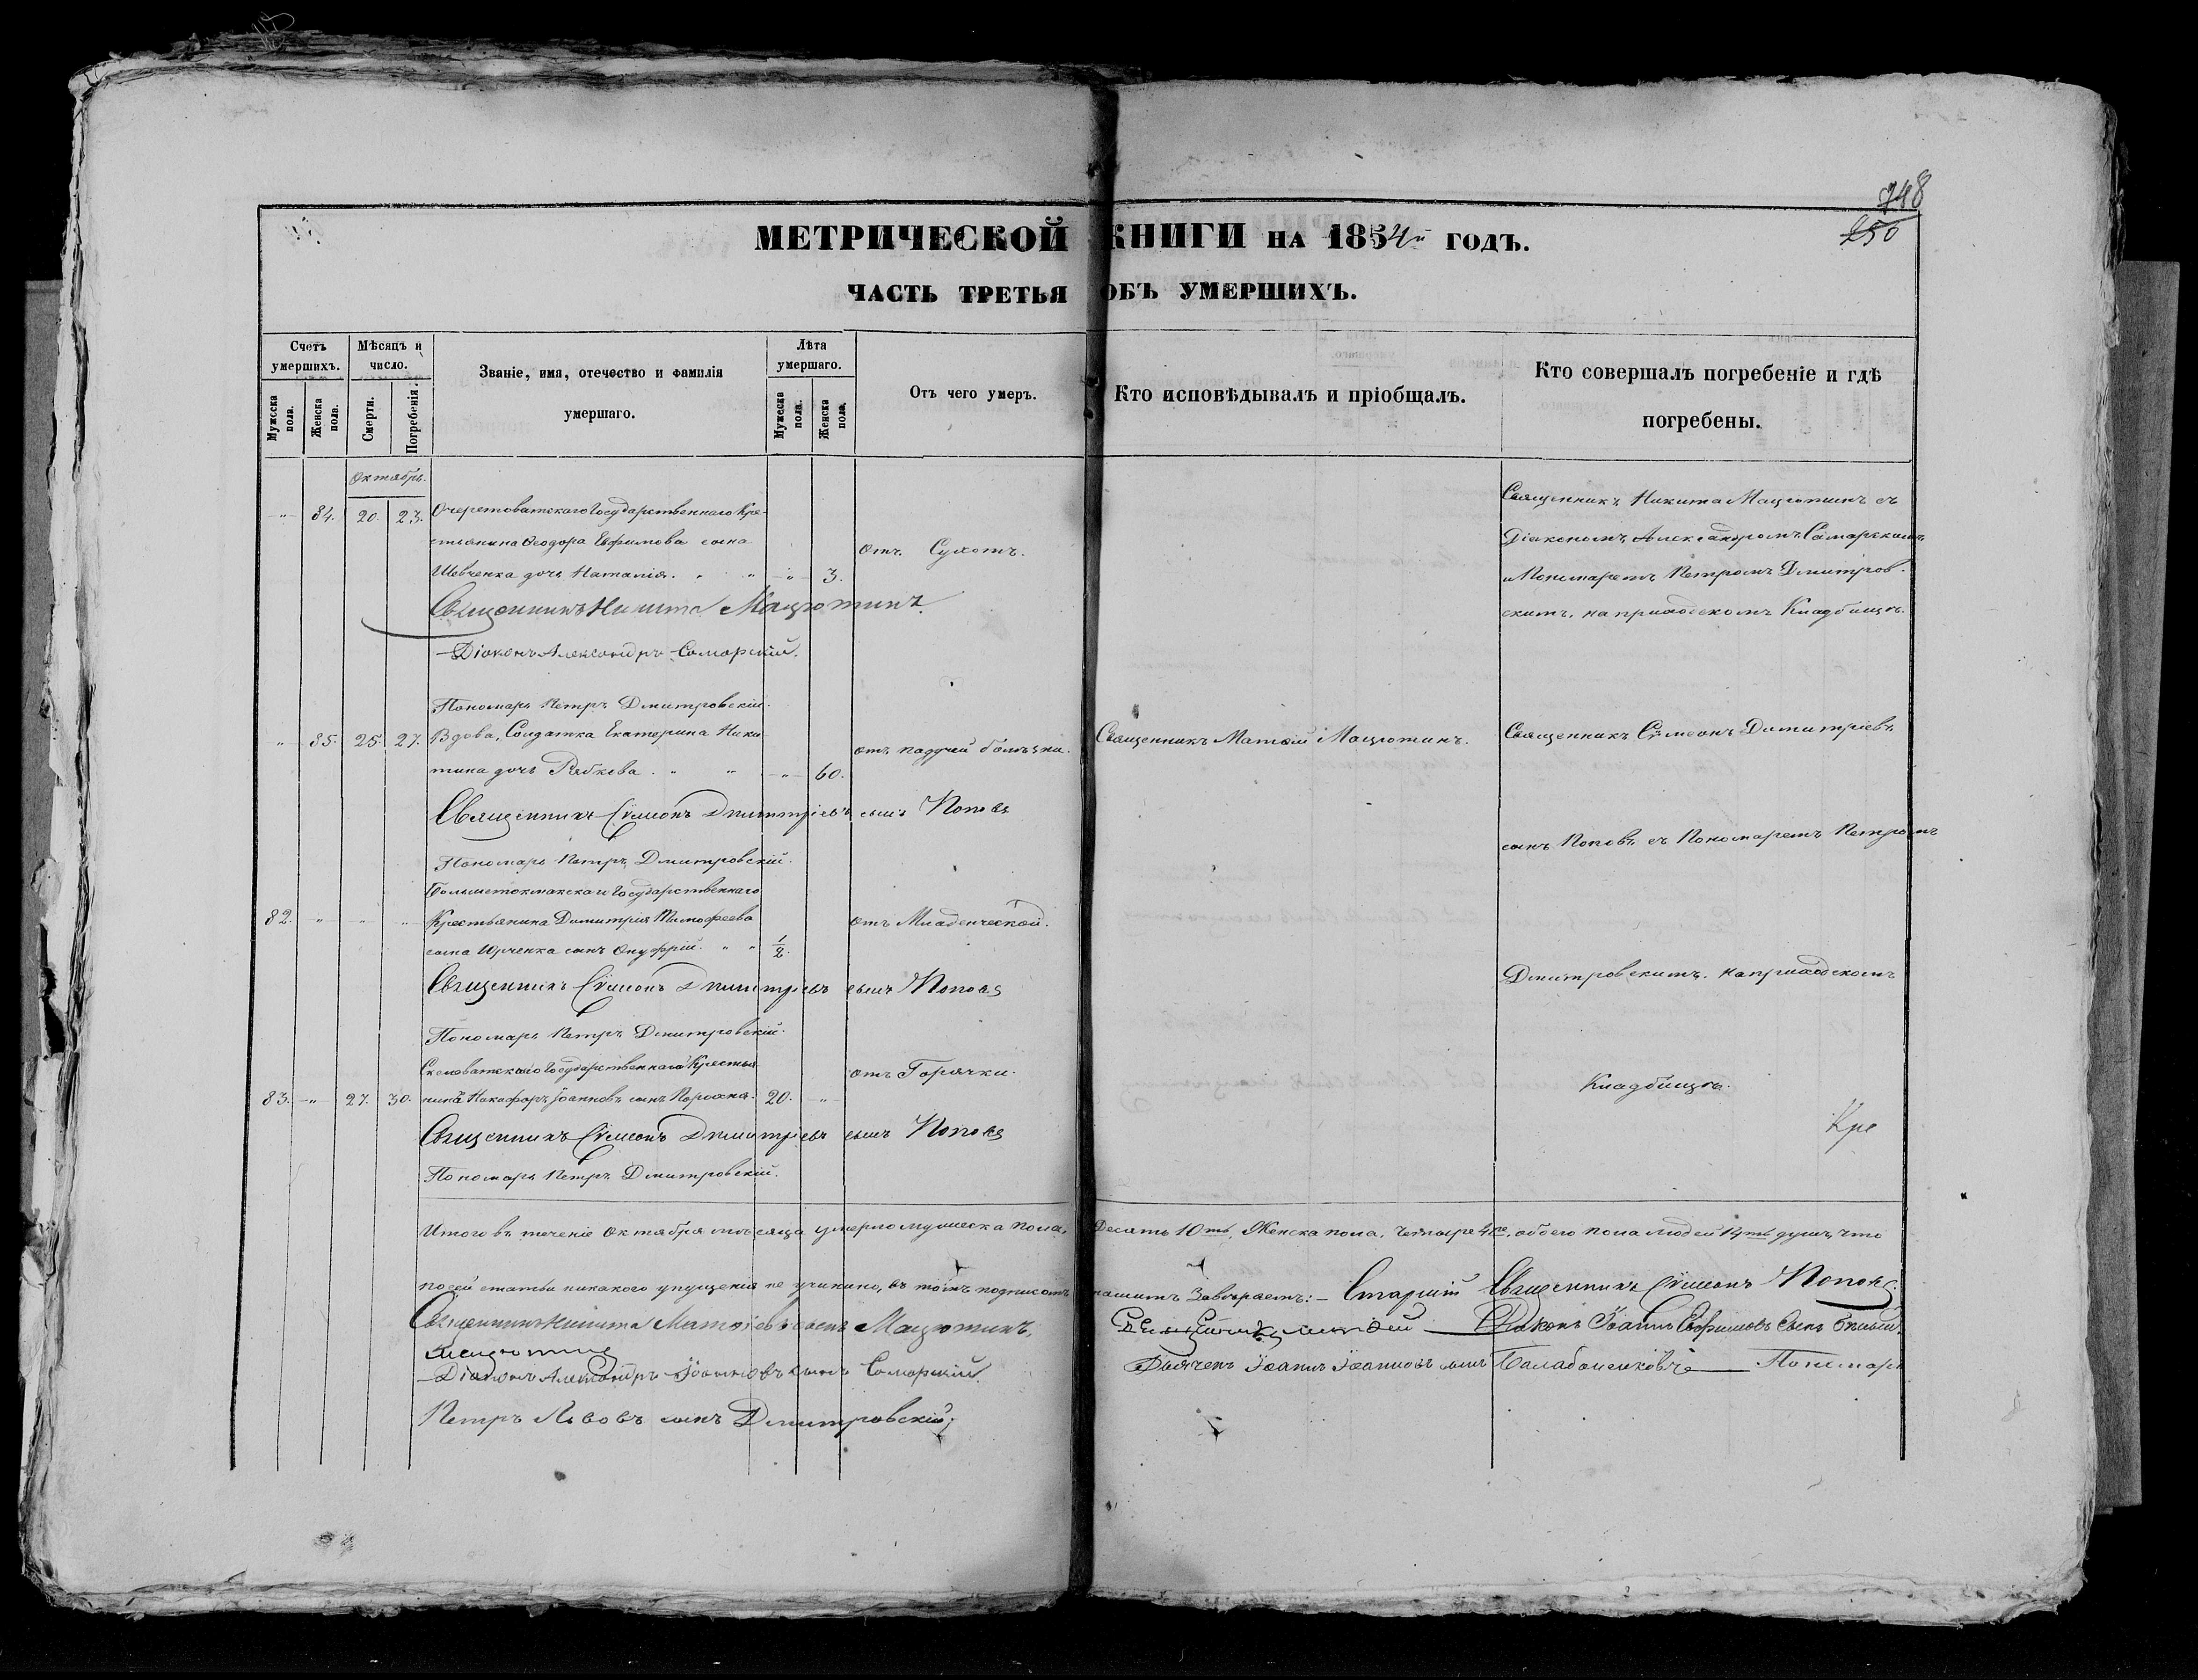 748
250
МЕТРИЧЕСКОЙ КНИГИ НА 1854й ГОДЪ.
ЧАСТЬ ТРЕТЬЯ ОБЪ УМЕРШИХЪ.
Счетъ умершихъ.
Мужеска пола.
Женска пола.
Мѣсяцъ и число.
Смерти.
Погребенія.
Званіе, имя, отечество и фамилія
умершаго.
Лѣта умершаго.
Мужеска пола.
Женска пола.
Отъ чего умеръ.
Кто исповѣдывалъ и пріобщалъ.
Кто совершалъ погребеніе и гдѣ
погребены.
Октябрь.
" 84. 20. 23. Очеретоватскаго Государственнаго Кре-
стьянина Ѳеодора Евфимова сына
Шевченка дочь Наталія. " " " 3.
отъ Сухотъ.
Священникъ Никита Мацютинъ съ
Діакономъ Александромъ Самарскимъ
и Пономаремъ Петромъ Дмитров-
скимъ, на приходскомъ Кладбищѣ.
Священникъ Никита Мацютинъ
Діаконъ Александръ Самарскій.
Пономарь Петръ Дмитровскій.
" 85. 25. 27. Вдова, Солдатка Екатерина Ники-
тина дочь Рябкова. " " " 60.
отъ падучей болѣзни.
Священникъ Матѳій Мацютинъ.
Священникъ Сѵмеонъ Димитріевъ
Священникъ Сѵмеонъ Димитріевъ сынъ Поповъ
сынъ Поповъ съ Пономаремъ Петромъ
Пономарь Петръ Дмитровскій.
Большетокмакскаго Государственнаго
82. " " " Крестьянина Димитрія Тимофеева
сына Юрченка сынъ Онуфрій. " " 1/2.
отъ Младенческой.
Священникъ Сѵмеонъ Димитріевъ сынъ Поповъ
Дмитровскимъ. на приходскомъ
Пономарь Петръ Дмитровскій.
Государственнаго Крестья-
83. " 27. 30. Іоанновъ сынъ 20. "
отъ Горячки.
Кладбищѣ.
Священникъ Сѵмеонъ Димитріевъ сынъ Поповъ
Кре
Пономарь Петръ Дмитровскій.
Итого въ теченіе Октября мѣсяца умерло мужеска пола, Десять 10ть, Женска пола, Четыре 4ре, обоего пола людей 14ть душъ, что
по сей статьи никакого упущенія не учинено, въ томъ подписомъ нашимъ Завѣряемъ:— Старшій Священникъ Сѵмеонъ Поповъ.
Священникъ Никита Матѳіевъ сынъ Мацютинъ,
Діаконъ Іоаннъ Евфимовъ Сынъ
Мацютинъ
Діаконъ Александръ Іоанновъ сынъ Самарскій.
Дьячекъ Іоаннъ Іоанновъ сынъ Пономарь
Петръ Львовъ сынъ Дмитровскій;